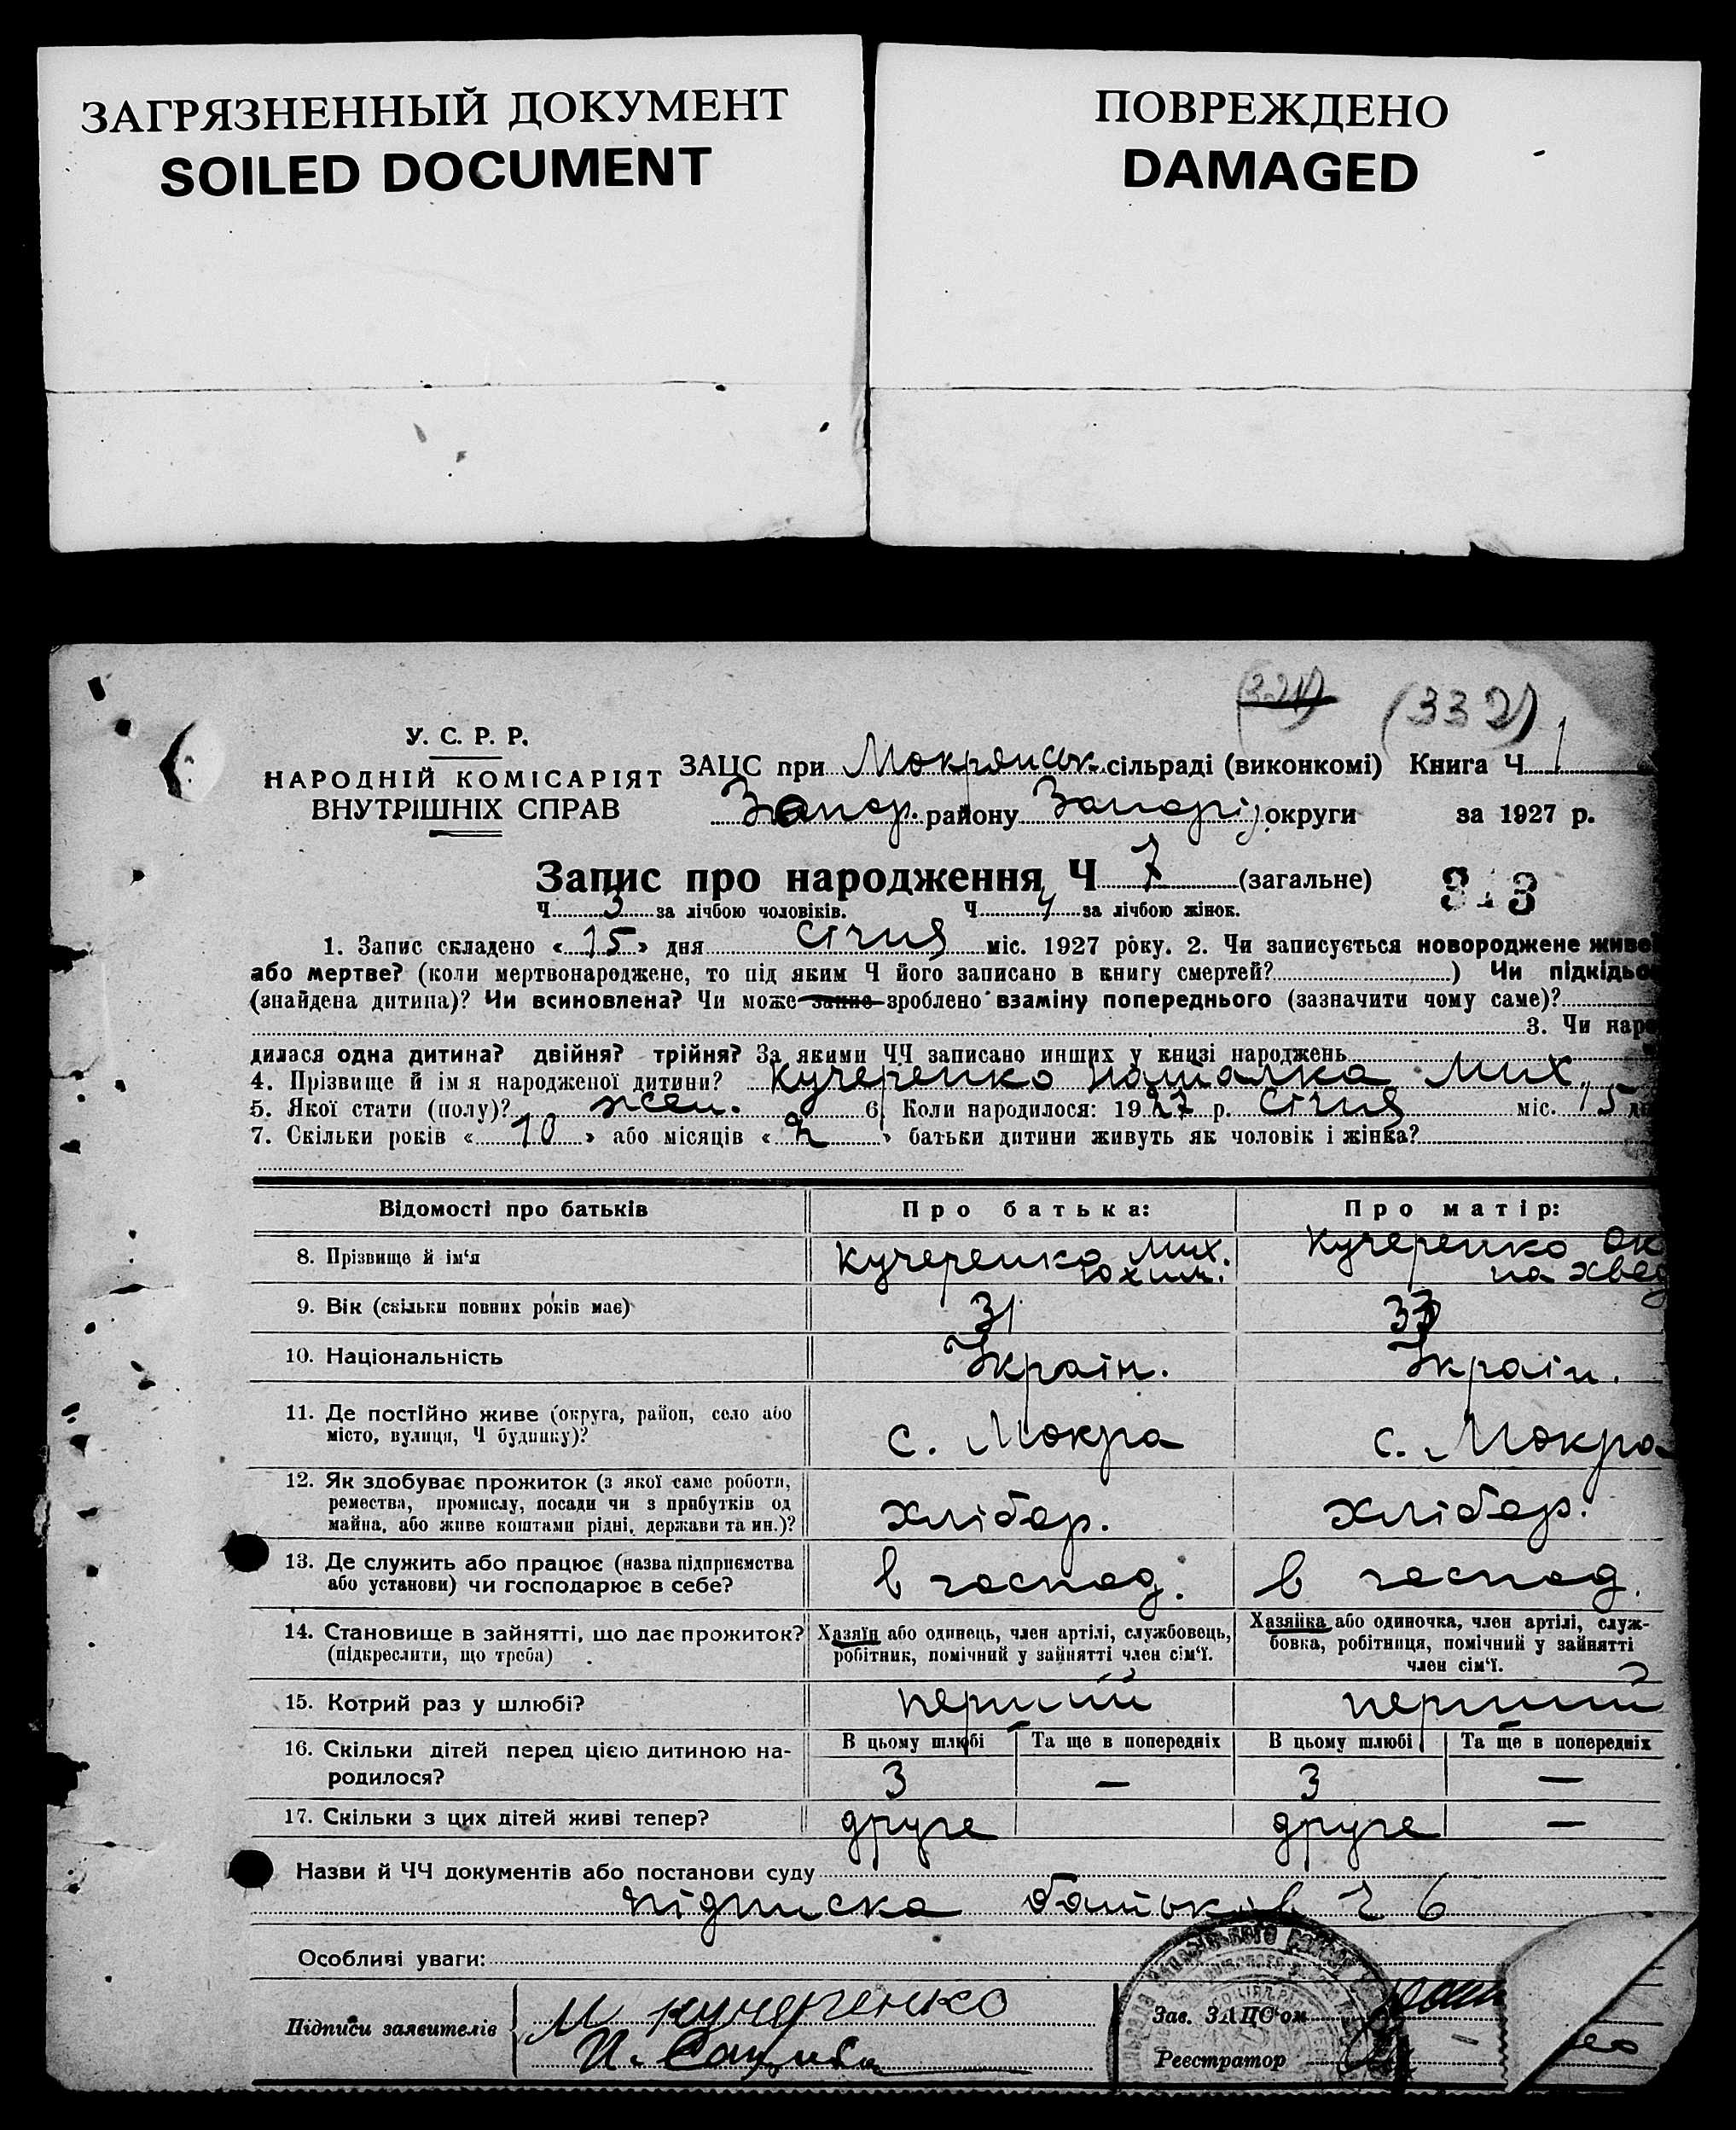 ЗАГРЯЗНЕННЫЙ ДОКУМЕНТ
SOILED DOCUMENT
ПОВРЕЖДЕНО
DAMAGED
(332)
У. С. Р. Р.
НАРОДНІЙ КОМІСАРІЯТ
ВНУТРІШНІХ СПРАВ
ЗАЦС при Мокрянськ. сільраді (виконкомі) Книга Ч 1
Запор. району Запоріз. округи за 1927 р.
Запис про народження Ч 7 (загальне)
Ч 3 за лічбою чоловіків. Ч 4 за лічбою жінок.
1. Запис складено « 15 » дня січня міс. 1927 року. 2. Чи записується новороджене живе
або мертве? (коли мертвонароджене, то під яким Ч його записано в книгу смертей? ) Чи підкідьо
(знайдена дитина)? Чи всиновлена? Чи може запис зроблено взаміну попереднього (зазначити чому саме)?
3. Чи наро
дилася одна дитина? двійня? трійня? За якими ЧЧ записано инших у книзі народжень
4. Прізвище й ім я народженої дитини? Кучеренко Наталка Мих.
5. Якої стати (полу)? жен. 6. Коли народилося: 1927 р. січня міс. 15 дн
7. Скільки років « 10 » або місяців « 2 » батьки дитини живуть як чоловік і жінка?
Відомості про батьків Про батька: Про матір:
8. Прізвище й ім'я Кучеренко Мих. Юхим. Кучеренко Ок на Хвед
9. Вік (скільки повних років має) 31 33
10. Національність Україн. Україн.
11. Де постійно живе (округа, район, село або
місто, вулиця, Ч будинку)? с. Мокра с. Мокра
12. Як здобуває прожиток (з якої саме роботи,
ремества, промислу, посади чи з прибутків од
майна, або живе коштами рідні, держави та ин.)? хлібор. хлібор.
13. Де служить або працює (назва підприємства
або установи) чи господарює в себе? в господ. в господ.
14. Становище в зайнятті, що дає прожиток?
(підкреслити, що треба)
Хазяїн або одинець, член артілі, службовець,
робітник, помічний у зайнятті член сім'ї.
Хазяйка або одиночка, член артілі, служ-
бовка, робітниця, помічний у зайнятті
член сім'ї.
15. Котрий раз у шлюбі? перший перший
16. Скільки дітей перед цією дитиною на-
родилося?
В цьому шлюбі Та ще в попередніх В цьому шлюбі Та ще в попередніх
3 — 3 —
17. Скільки з цих дітей живі тепер? друге друге —
Назви й ЧЧ документів або постанови суду
підписка батьків Ч 6
Особливі уваги:
Підписи заявителів М Кучеренко
Зав. ЗАЦС'ом
Реєстратор